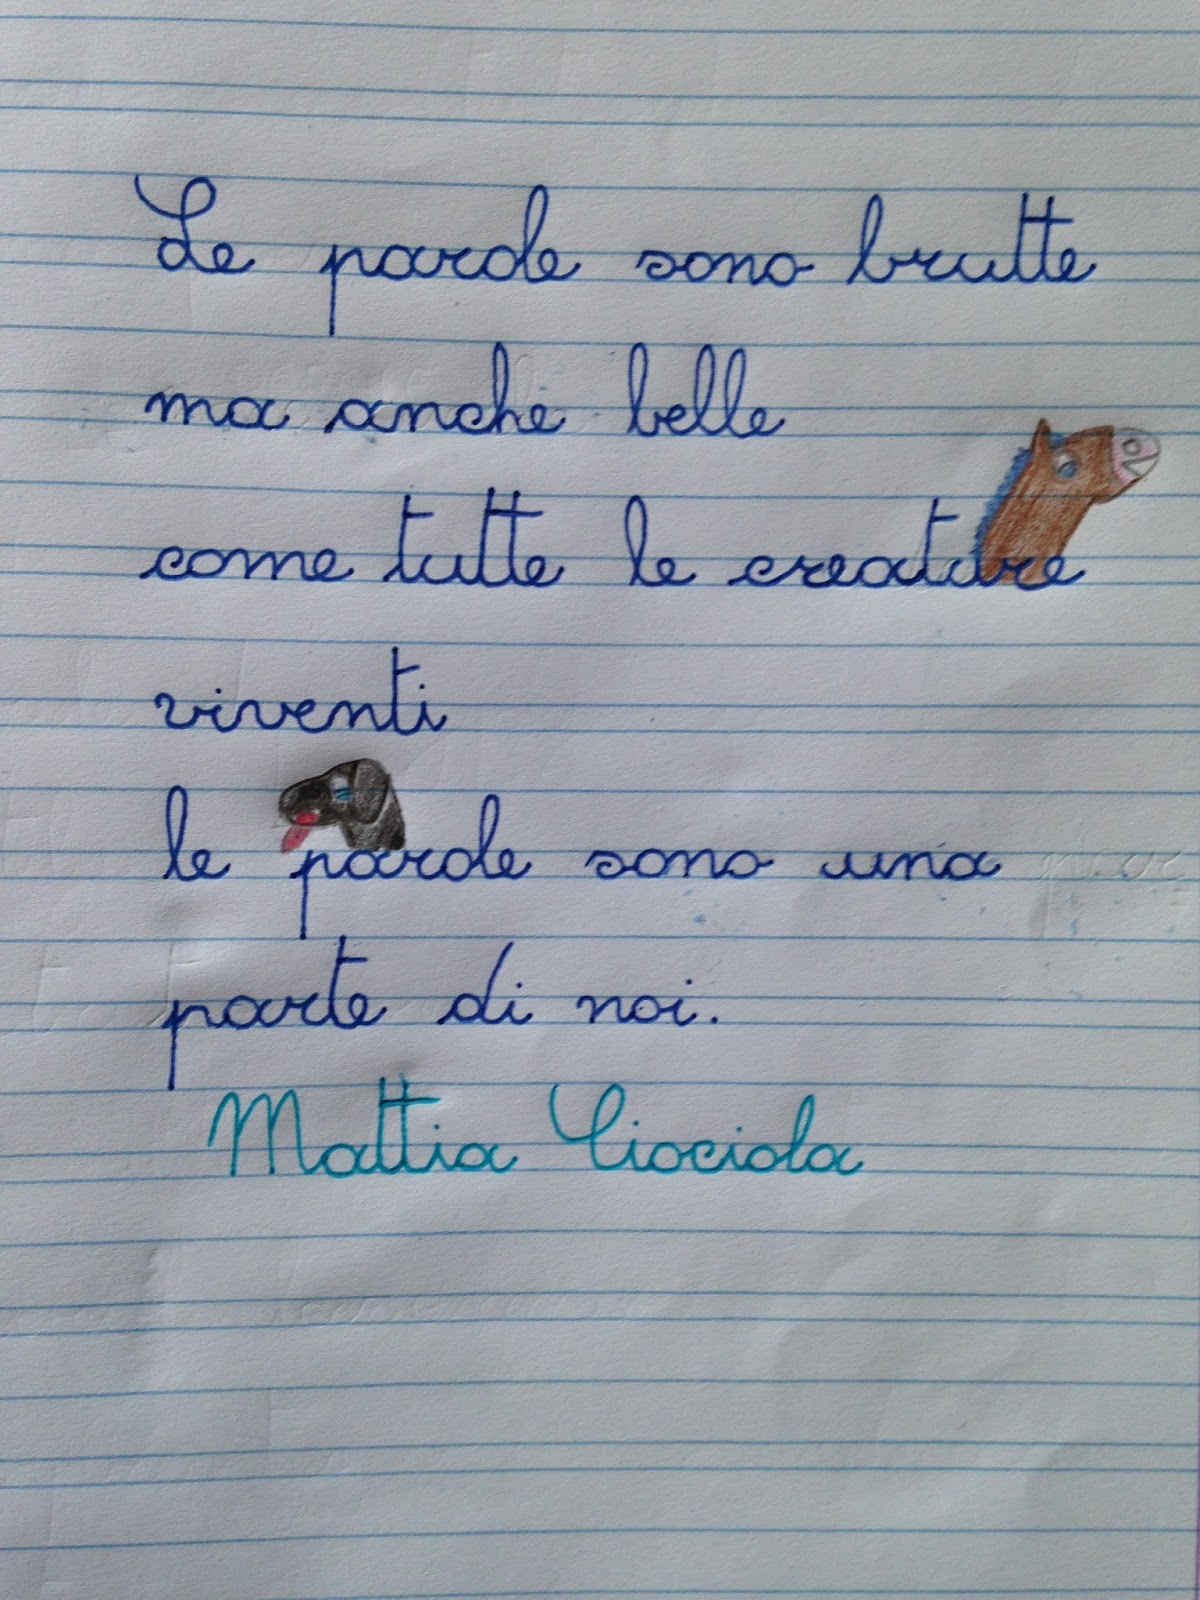 Le parole sono brutte
ma anche belle
come tutte le creature
viventi
le parole sono una
parte di noi.
Mattia Ciociola